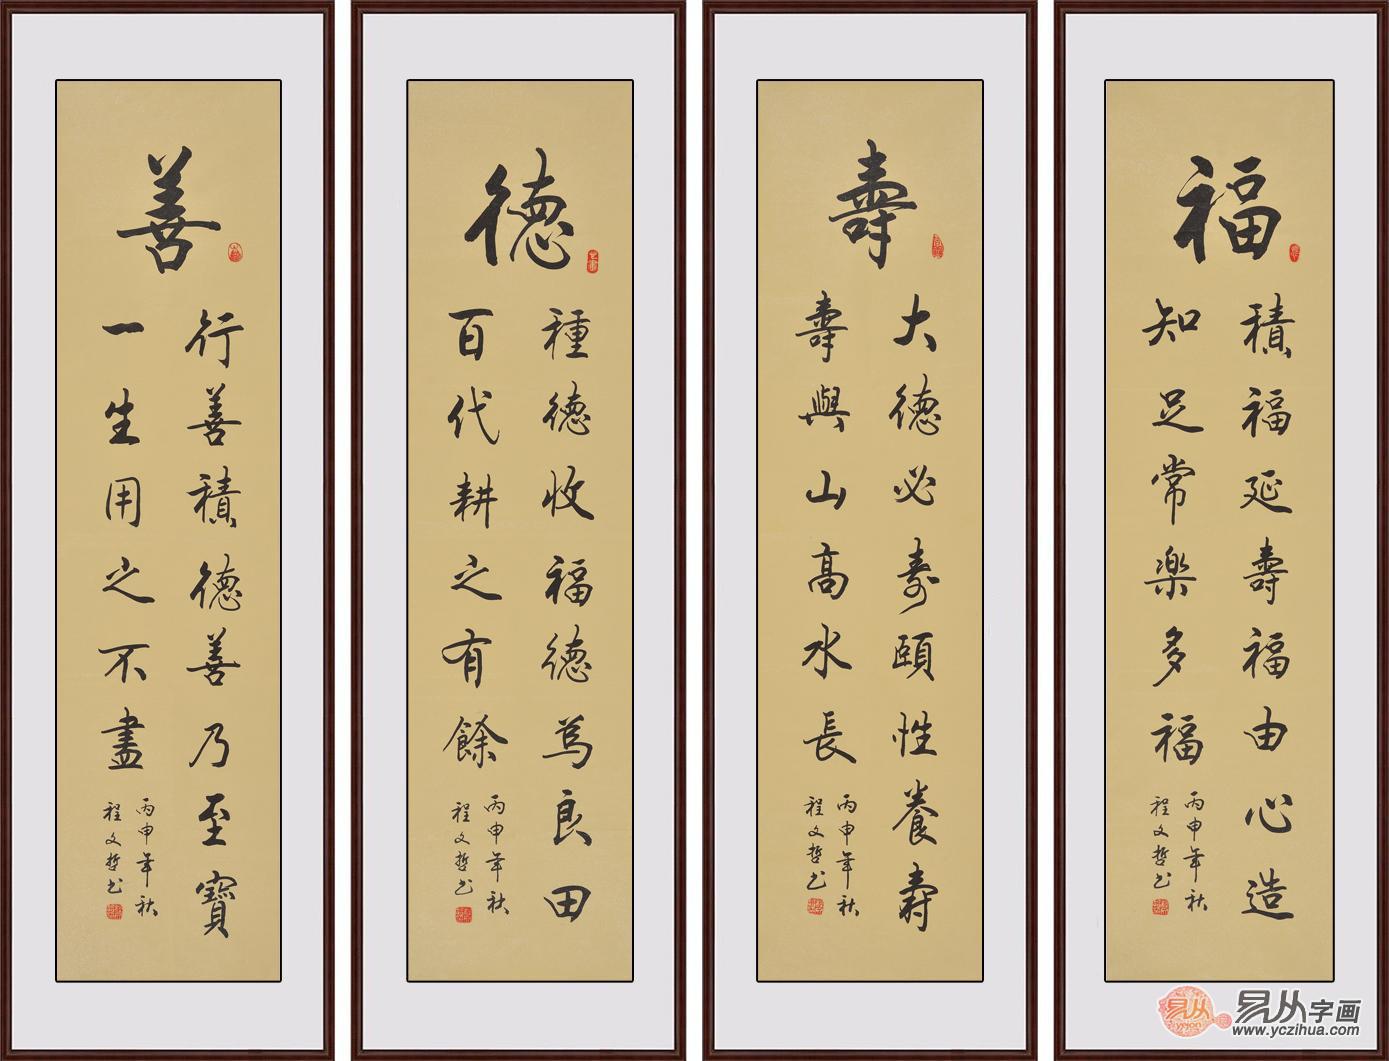 福
積福延壽福由心造
知足常楽多福
丙申年秋
程文哲书
壽
大德必寿頤性養壽
壽與山高水長
丙申年秋
程文哲书
德
種德收福德為良田
百代耕之有餘
丙申年秋
程文哲书
善
行善積德善乃至寶
一生用之不盡
丙申年秋
程文哲书
易从
yejon
易从字画
www.yczihua.com